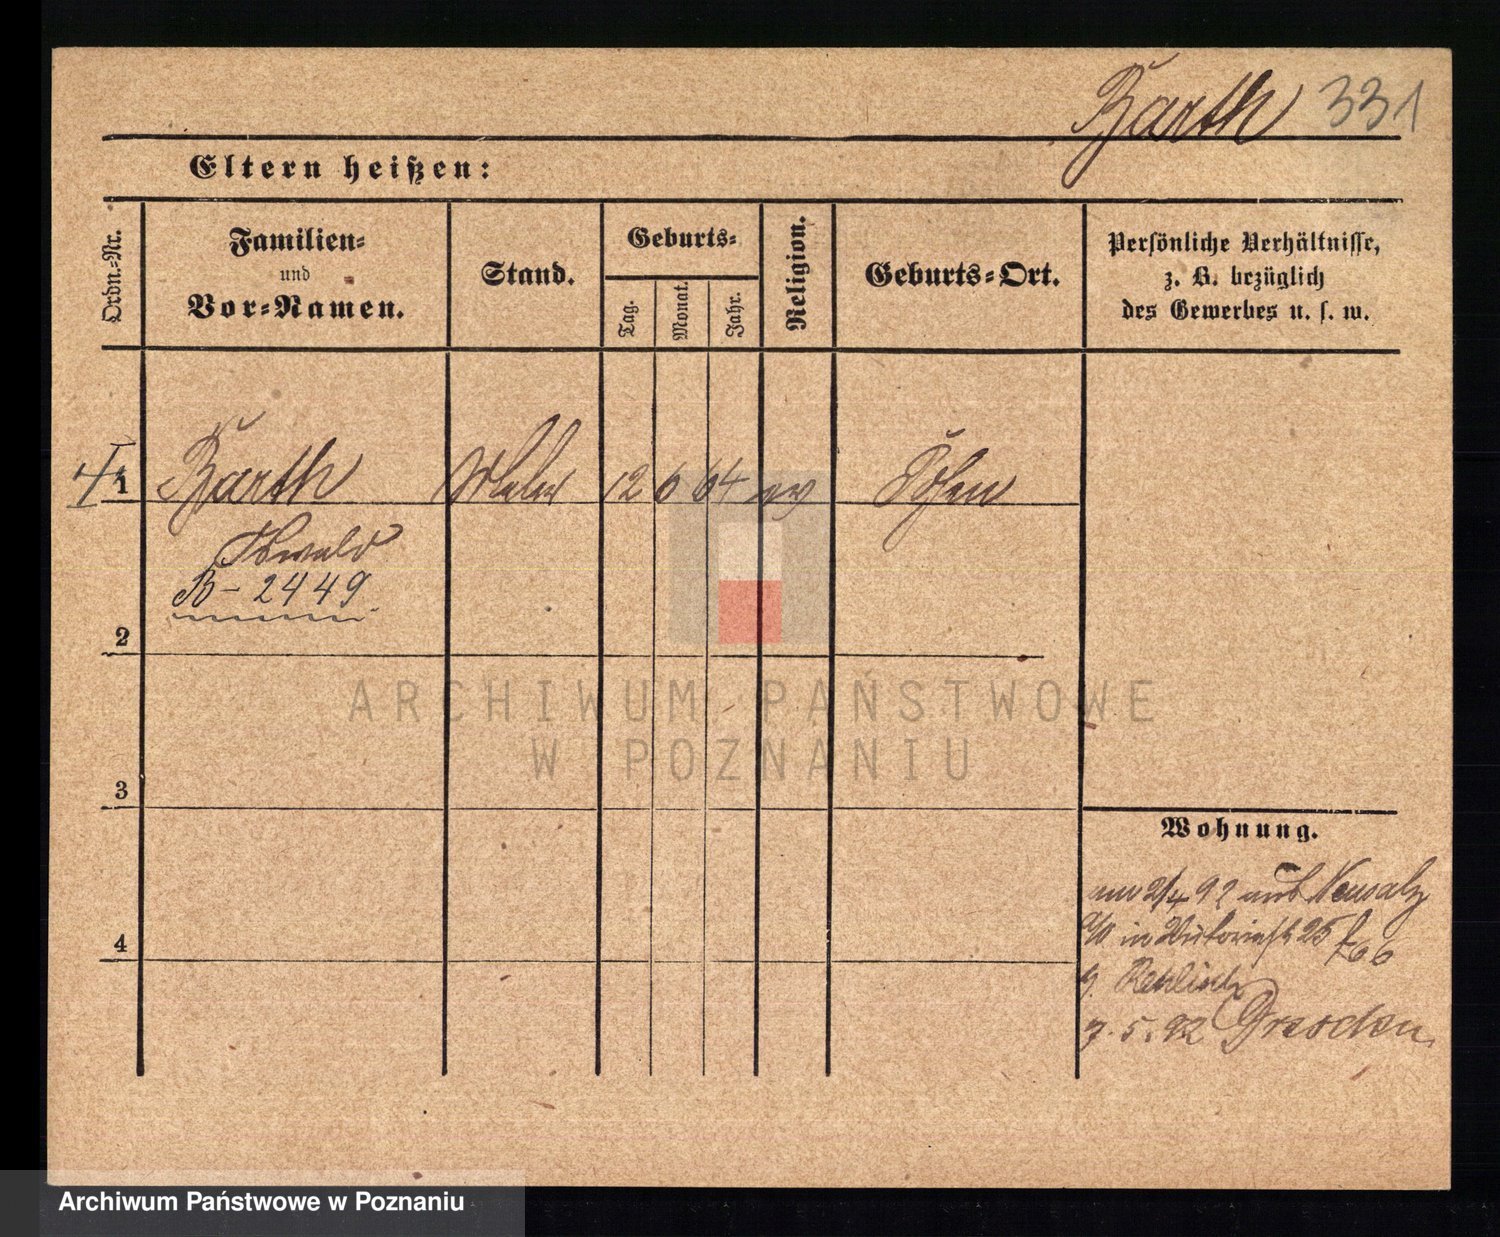 Barth 331
Eltern heißen:
Ordn.-Nr.
Familien-
und
Vor-Namen.
Stand.
Geburts-
Tag.
Monat.
Jahr.
Religion.
Geburts-Ort.
Persönliche Verhältnisse,
z. B. bezüglich
des Gewerbes u. s. w.
I 1 Barth Maler 12 6 64 ev Posen
Oswald
B-2449
2
3
4
ARCHIWUM PAŃSTWOWE
W POZNANIU
Wohnung.
am 2/4 92 aus Neusalz
a/O in 25
7.5.92 Dresden
Archiwum Państwowe w Poznaniu